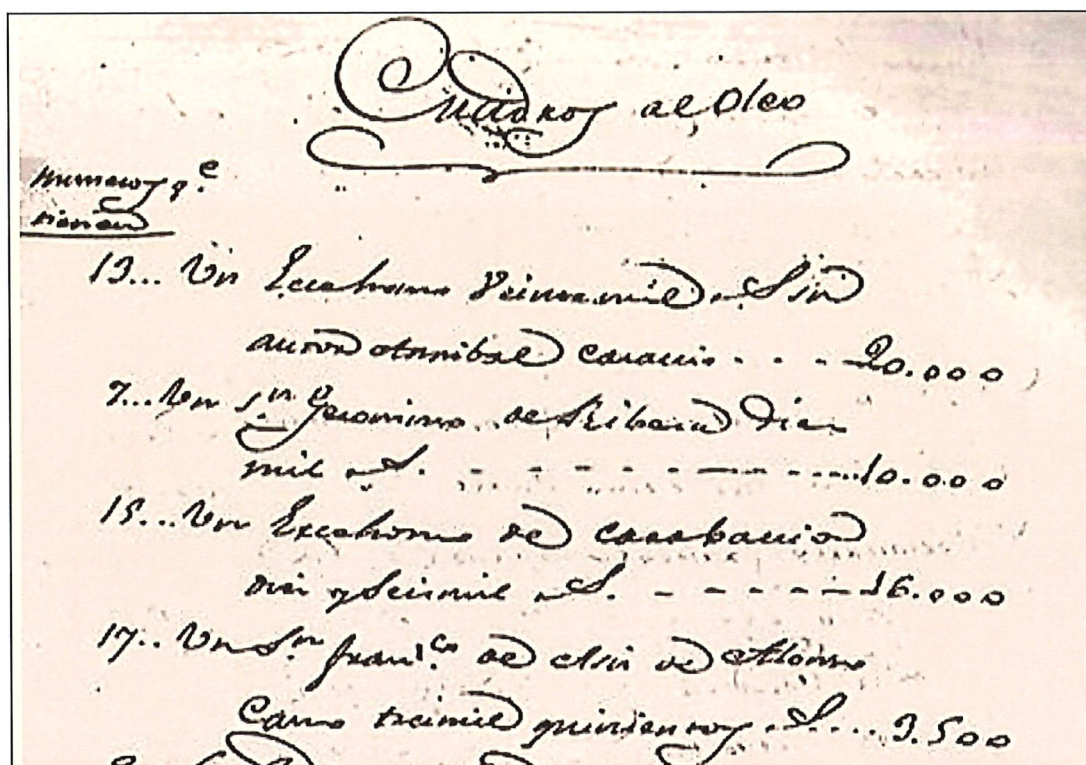 Quadros al Oleo
numeros q.e
tienen
13... Un Eccehomo Veinte mil rs Sin
autor Annibal Caracio - - - 20.000
7... Un S.n Geronimo de Ribera Diez
mil rs. - - - - - - - - - - 10.000
15... Un Eccehomo de Carabaccio
diez y Seis mil rs. - - - - - 16.000
17... Un S.n Fran.co de Asis de Alonso
Cano tres mil quinientos rs. ... 3.500